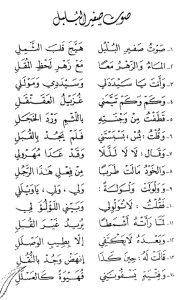 صوت صفير البلبل
١ـ صَوْتُ صَفِيرِ البُلْبُلِ هَيَّجَ قَلْبَ الثَّمِلِ
٢ـ المَاءُ وَالزَّهْرُ مَعًا مَعَ زَهْرِ لَحْظِ المُقَلِ
٣ـ وَأَنْتَ يَا سَيِّدَ لِي وَسَيِّدِي وَمَوْلَى لِي
٤ـ وَكَمْ وَكَمْ تَيَّمَنِي غُزَيِّلٌ عَقَيْقَلِي
٥ـ قَطَفْتُ مِنْ وَجْنَتِهِ بِاللَّثْمِ وَرْدَ الخَجَلِ
٦ـ وَقُلْتُ بَسْبَسْتَنِي فَلَمْ يَجُدْ بِالقُبَلِ
٧ـ وَقَالَ لَا لَا لَلَا وَقَدْ غَدَا مُهَرْوِلِ
٨ـ وَالخُودُ مَالَتْ طَرَبًا مِنْ فِعْلِ هَذَا الرَّجُلِ
٩ـ وَوَلْوَلَتْ وَلْوَلَةً وَلِي وَلِي يَا وَيْلَ لِي
١٠ـ فَقُلْتُ لَا تُوَلْوِلِي وَبَيِّنِي اللُّؤْلُؤَ لِي
١١ـ لَمَّا رَأَتْهُ أَشْمَطَا يُرِيدُ غَيْرَ القُبَلِ
١٢ـ وَبَعْدَهُ لَا يَكْتَفِي إِلَّا بِطِيبِ الوَصْلِ
١٣ـ قَالَتْ لَهُ حِينَ كَذَا انْهَضْ وَجُدْ بِالنُّقَلِ
١٤ـ وَفِتْيَةٍ يَسْقُونَنِي قُهَيْوَةً كَالعَسَلِ